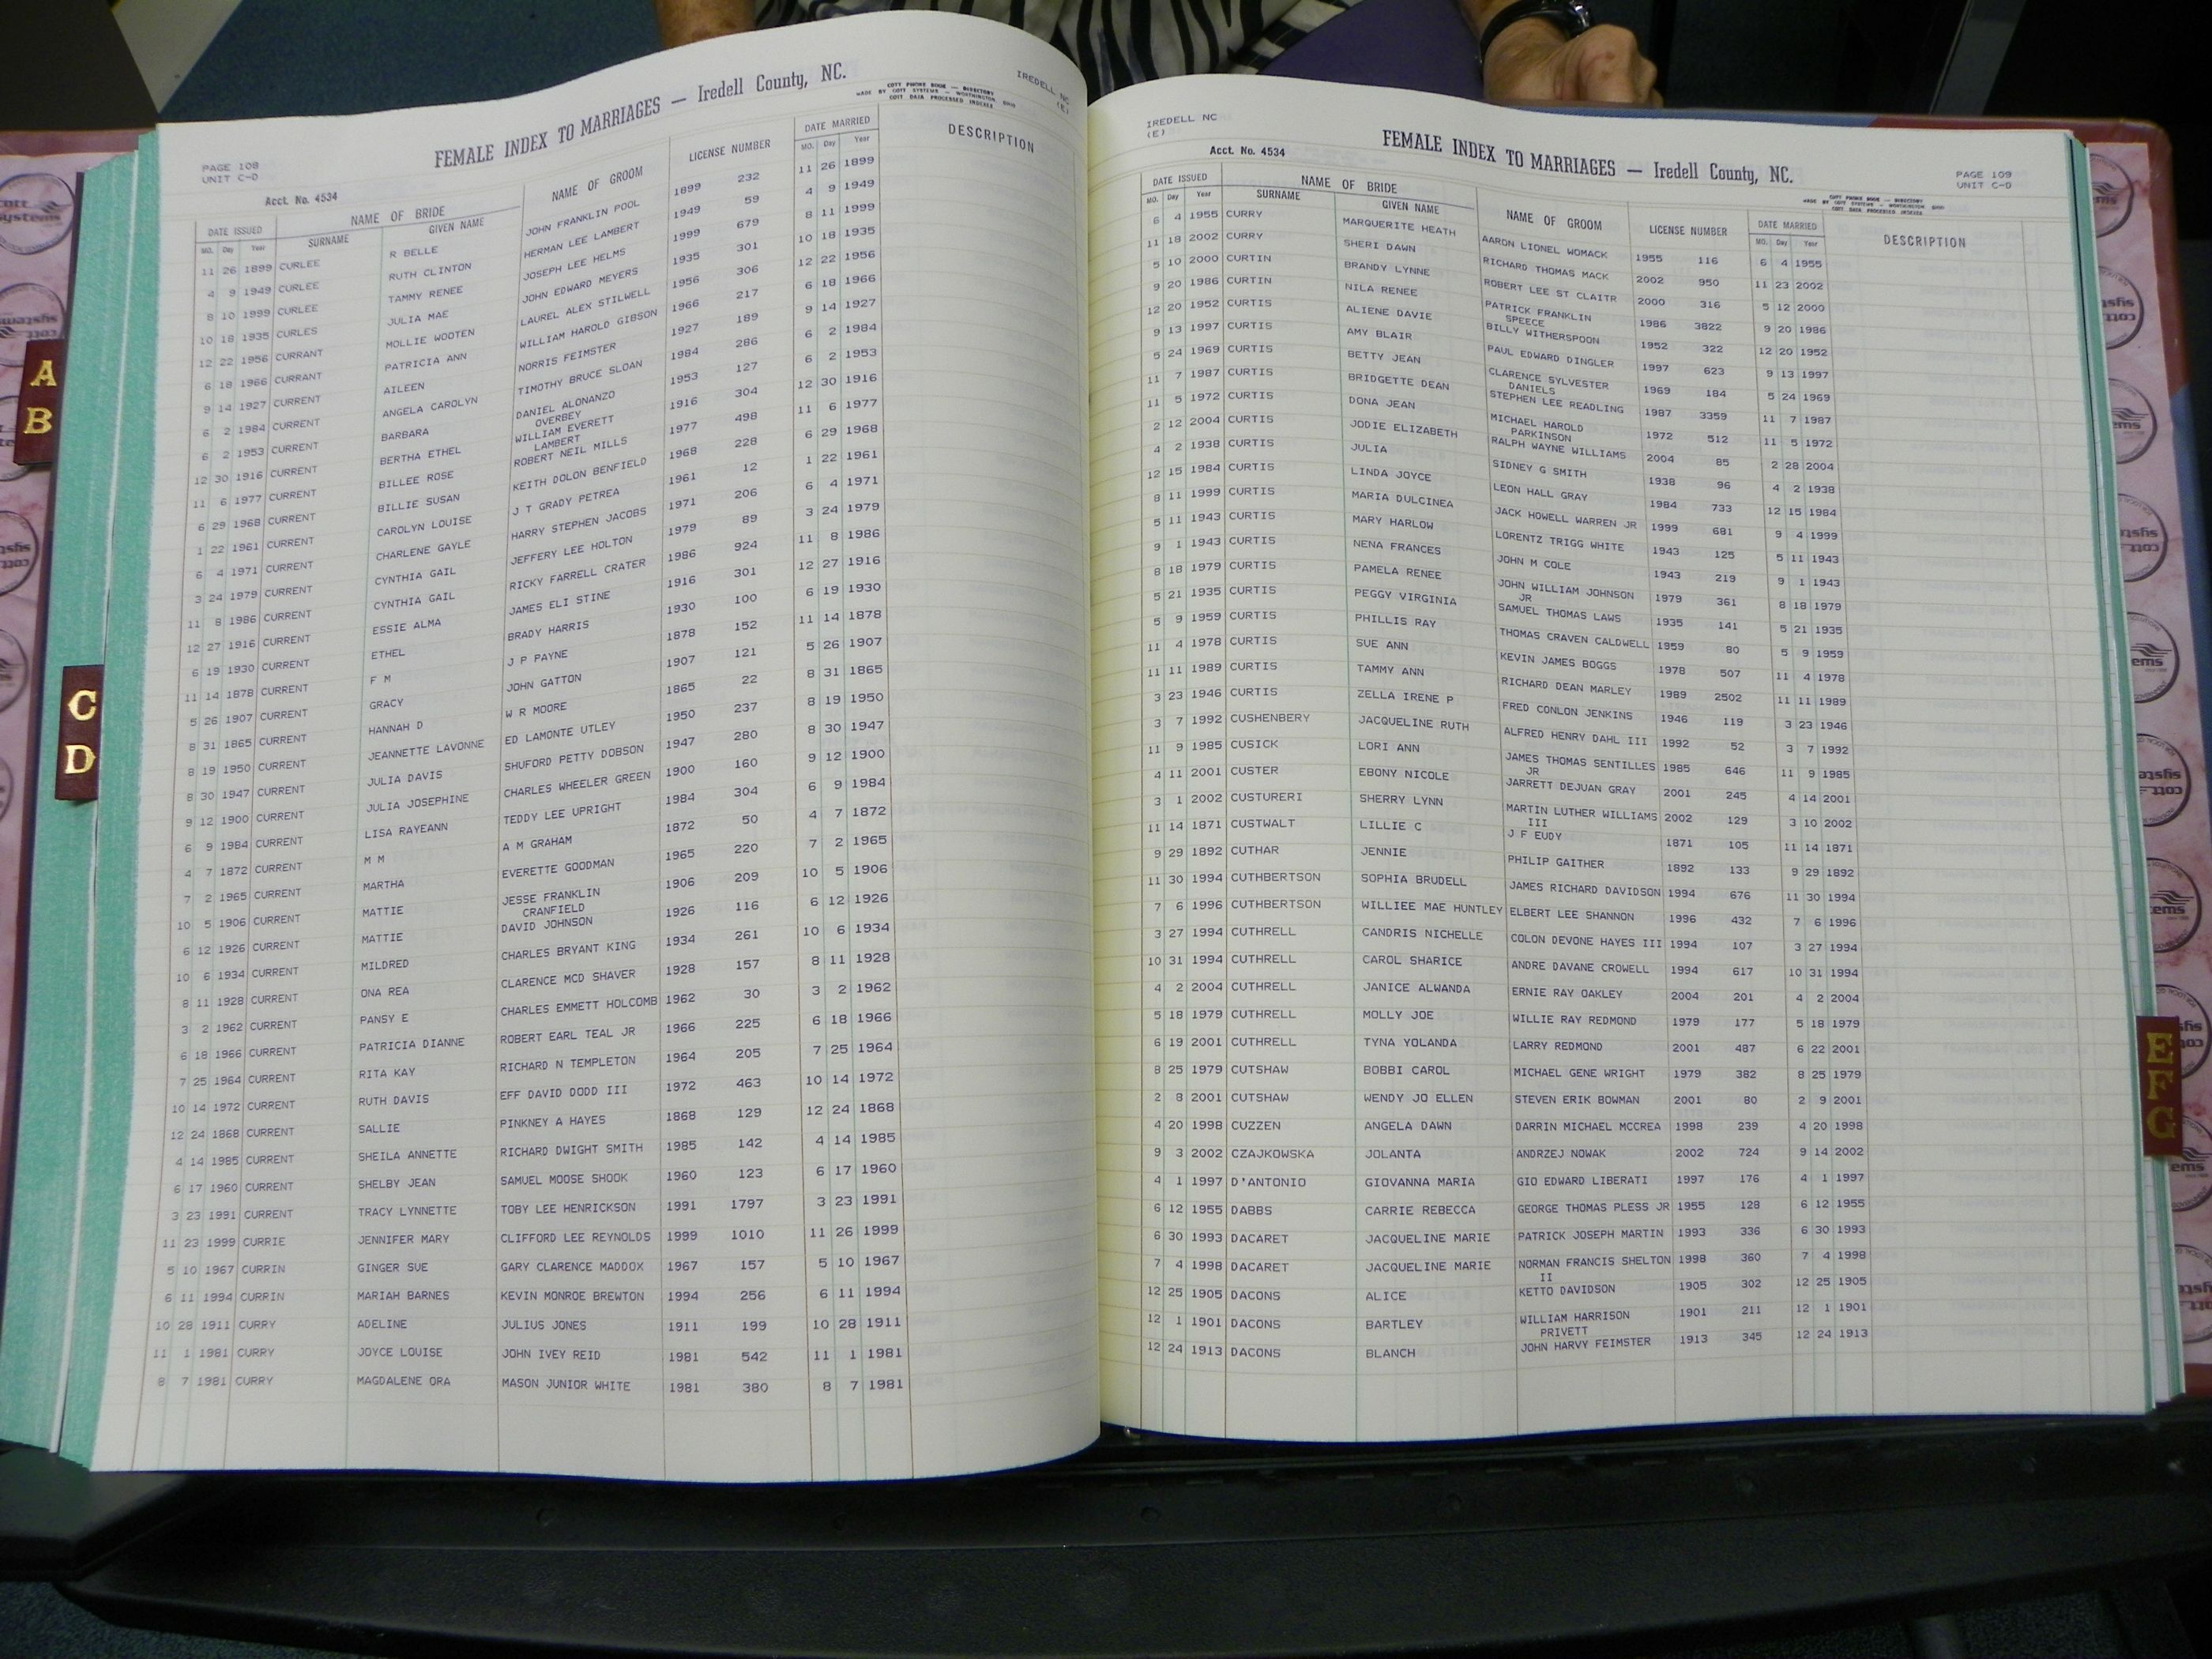 PAGE 108
UNIT C-D
FEMALE INDEX TO MARRIAGES — Iredell County, NC.
COTT PHONE BOOK — DIRECTORY
MADE BY COTT SYSTEMS — WORTHINGTON OHIO
COTT DATA PROCESSED INDEXES
IREDELL NC
(E)
Acct. No. 4534
DATE ISSUED NAME OF BRIDE NAME OF GROOM LICENSE NUMBER DATE MARRIED DESCRIPTION
MO. Day Year SURNAME GIVEN NAME MO. Day Year
11 26 1899 CURLEE R BELLE JOHN FRANKLIN POOL 1899 232 11 26 1899
4 9 1949 CURLEE RUTH CLINTON HERMAN LEE LAMBERT 1949 59 4 9 1949
8 10 1999 CURLEE TAMMY RENEE JOSEPH LEE HELMS 1999 679 8 11 1999
10 18 1935 CURLES JULIA MAE JOHN EDWARD MEYERS 1935 301 10 18 1935
12 22 1956 CURRANT MOLLIE WOOTEN LAUREL ALEX STILWELL 1956 306 12 22 1956
6 18 1966 CURRANT PATRICIA ANN WILLIAM HAROLD GIBSON 1966 217 6 18 1966
9 14 1927 CURRENT AILEEN NORRIS FEIMSTER 1927 189 9 14 1927
6 2 1984 CURRENT ANGELA CAROLYN TIMOTHY BRUCE SLOAN 1984 286 6 2 1984
6 2 1953 CURRENT BARBARA DANIEL ALONANZO 1953 127 6 2 1953
OVERBEY
12 30 1916 CURRENT BERTHA ETHEL WILLIAM EVERETT 1916 304 12 30 1916
LAMBERT
11 6 1977 CURRENT BILLEE ROSE ROBERT NEIL MILLS 1977 498 11 6 1977
6 29 1968 CURRENT BILLIE SUSAN KEITH DOLON BENFIELD 1968 228 6 29 1968
1 22 1961 CURRENT CAROLYN LOUISE J T GRADY PETREA 1961 12 1 22 1961
6 4 1971 CURRENT CHARLENE GAYLE HARRY STEPHEN JACOBS 1971 206 6 4 1971
3 24 1979 CURRENT CYNTHIA GAIL JEFFERY LEE HOLTON 1979 89 3 24 1979
11 8 1986 CURRENT CYNTHIA GAIL RICKY FARRELL CRATER 1986 924 11 8 1986
12 27 1916 CURRENT ESSIE ALMA JAMES ELI STINE 1916 301 12 27 1916
6 19 1930 CURRENT ETHEL BRADY HARRIS 1930 100 6 19 1930
11 14 1878 CURRENT F M J P PAYNE 1878 152 11 14 1878
5 26 1907 CURRENT GRACY JOHN GATTON 1907 121 5 26 1907
8 31 1865 CURRENT HANNAH D W R MOORE 1865 22 8 31 1865
8 19 1950 CURRENT JEANNETTE LAVONNE ED LAMONTE UTLEY 1950 237 8 19 1950
8 30 1947 CURRENT JULIA DAVIS SHUFORD PETTY DOBSON 1947 280 8 30 1947
9 12 1900 CURRENT JULIA JOSEPHINE CHARLES WHEELER GREEN 1900 160 9 12 1900
6 9 1984 CURRENT LISA RAYEANN TEDDY LEE UPRIGHT 1984 304 6 9 1984
4 7 1872 CURRENT M M A M GRAHAM 1872 50 4 7 1872
7 2 1965 CURRENT MARTHA EVERETTE GOODMAN 1965 220 7 2 1965
10 5 1906 CURRENT MATTIE JESSE FRANKLIN 1906 209 10 5 1906
CRANFIELD
6 12 1926 CURRENT MATTIE DAVID JOHNSON 1926 116 6 12 1926
10 6 1934 CURRENT MILDRED CHARLES BRYANT KING 1934 261 10 6 1934
8 11 1928 CURRENT ONA REA CLARENCE MCD SHAVER 1928 157 8 11 1928
3 2 1962 CURRENT PANSY E CHARLES EMMETT HOLCOMB 1962 30 3 2 1962
6 18 1966 CURRENT PATRICIA DIANNE ROBERT EARL TEAL JR 1966 225 6 18 1966
7 25 1964 CURRENT RITA KAY RICHARD N TEMPLETON 1964 205 7 25 1964
10 14 1972 CURRENT RUTH DAVIS EFF DAVID DODD III 1972 463 10 14 1972
12 24 1868 CURRENT SALLIE PINKNEY A HAYES 1868 129 12 24 1868
4 14 1985 CURRENT SHEILA ANNETTE RICHARD DWIGHT SMITH 1985 142 4 14 1985
6 17 1960 CURRENT SHELBY JEAN SAMUEL MOOSE SHOOK 1960 123 6 17 1960
3 23 1991 CURRENT TRACY LYNNETTE TOBY LEE HENRICKSON 1991 1797 3 23 1991
11 23 1999 CURRIE JENNIFER MARY CLIFFORD LEE REYNOLDS 1999 1010 11 26 1999
5 10 1967 CURRIN GINGER SUE GARY CLARENCE MADDOX 1967 157 5 10 1967
6 11 1994 CURRIN MARIAH BARNES KEVIN MONROE BREWTON 1994 256 6 11 1994
10 28 1911 CURRY ADELINE JULIUS JONES 1911 199 10 28 1911
11 1 1981 CURRY JOYCE LOUISE JOHN IVEY REID 1981 542 11 1 1981
8 7 1981 CURRY MAGDALENE ORA MASON JUNIOR WHITE 1981 380 8 7 1981
IREDELL NC
(E)
Acct. No. 4534
FEMALE INDEX TO MARRIAGES — Iredell County, NC.
PAGE 109
UNIT C-D
COTT PHONE BOOK — DIRECTORY
MADE BY COTT SYSTEMS — WORTHINGTON OHIO
COTT DATA PROCESSED INDEXES
DATE ISSUED NAME OF BRIDE NAME OF GROOM LICENSE NUMBER DATE MARRIED DESCRIPTION
MO. Day Year SURNAME GIVEN NAME MO. Day Year
6 4 1955 CURRY MARQUERITE HEATH AARON LIONEL WOMACK 1955 116 6 4 1955
11 18 2002 CURRY SHERI DAWN RICHARD THOMAS MACK 2002 950 11 23 2002
5 10 2000 CURTIN BRANDY LYNNE ROBERT LEE ST CLAITR 2000 316 5 12 2000
9 20 1986 CURTIN NILA RENEE PATRICK FRANKLIN 1986 3822 9 20 1986
SPEECE
12 20 1952 CURTIS ALIENE DAVIE BILLY WITHERSPOON 1952 322 12 20 1952
9 13 1997 CURTIS AMY BLAIR PAUL EDWARD DINGLER 1997 623 9 13 1997
5 24 1969 CURTIS BETTY JEAN CLARENCE SYLVESTER 1969 184 5 24 1969
DANIELS
11 7 1987 CURTIS BRIDGETTE DEAN STEPHEN LEE READLING 1987 3359 11 7 1987
11 5 1972 CURTIS DONA JEAN MICHAEL HAROLD 1972 512 11 5 1972
PARKINSON
2 12 2004 CURTIS JODIE ELIZABETH RALPH WAYNE WILLIAMS 2004 85 2 28 2004
4 2 1938 CURTIS JULIA SIDNEY G SMITH 1938 96 4 2 1938
12 15 1984 CURTIS LINDA JOYCE LEON HALL GRAY 1984 733 12 15 1984
8 11 1999 CURTIS MARIA DULCINEA JACK HOWELL WARREN JR 1999 681 9 4 1999
5 11 1943 CURTIS MARY HARLOW LORENTZ TRIGG WHITE 1943 125 5 11 1943
9 1 1943 CURTIS NENA FRANCES JOHN M COLE 1943 219 9 1 1943
8 18 1979 CURTIS PAMELA RENEE JOHN WILLIAM JOHNSON 1979 361 8 18 1979
JR
5 21 1935 CURTIS PEGGY VIRGINIA SAMUEL THOMAS LAWS 1935 141 5 21 1935
5 9 1959 CURTIS PHILLIS RAY THOMAS CRAVEN CALDWELL 1959 80 5 9 1959
11 4 1978 CURTIS SUE ANN KEVIN JAMES BOGGS 1978 507 11 4 1978
11 11 1989 CURTIS TAMMY ANN RICHARD DEAN MARLEY 1989 2502 11 11 1989
3 23 1946 CURTIS ZELLA IRENE P FRED CONLON JENKINS 1946 119 3 23 1946
3 7 1992 CUSHENBERY JACQUELINE RUTH ALFRED HENRY DAHL III 1992 52 3 7 1992
11 9 1985 CUSICK LORI ANN JAMES THOMAS SENTILLES 1985 646 11 9 1985
JR
4 11 2001 CUSTER EBONY NICOLE JARRETT DEJUAN GRAY 2001 245 4 14 2001
3 1 2002 CUSTURERI SHERRY LYNN MARTIN LUTHER WILLIAMS 2002 129 3 10 2002
III
11 14 1871 CUSTWALT LILLIE C J F EUDY 1871 105 11 14 1871
9 29 1892 CUTHAR JENNIE PHILIP GAITHER 1892 133 9 29 1892
11 30 1994 CUTHBERTSON SOPHIA BRUDELL JAMES RICHARD DAVIDSON 1994 676 11 30 1994
7 6 1996 CUTHBERTSON WILLIEE MAE HUNTLEY ELBERT LEE SHANNON 1996 432 7 6 1996
3 27 1994 CUTHRELL CANDRIS NICHELLE COLON DEVONE HAYES III 1994 107 3 27 1994
10 31 1994 CUTHRELL CAROL SHARICE ANDRE DAVANE CROWELL 1994 617 10 31 1994
4 2 2004 CUTHRELL JANICE ALWANDA ERNIE RAY OAKLEY 2004 201 4 2 2004
5 18 1979 CUTHRELL MOLLY JOE WILLIE RAY REDMOND 1979 177 5 18 1979
6 19 2001 CUTHRELL TYNA YOLANDA LARRY REDMOND 2001 487 6 22 2001
8 25 1979 CUTSHAW BOBBI CAROL MICHAEL GENE WRIGHT 1979 382 8 25 1979
2 8 2001 CUTSHAW WENDY JO ELLEN STEVEN ERIK BOWMAN 2001 80 2 9 2001
4 20 1998 CUZZEN ANGELA DAWN DARRIN MICHAEL MCCREA 1998 239 4 20 1998
9 3 2002 CZAJKOWSKA JOLANTA ANDRZEJ NOWAK 2002 724 9 14 2002
4 1 1997 D'ANTONIO GIOVANNA MARIA GIO EDWARD LIBERATI 1997 176 4 1 1997
6 12 1955 DABBS CARRIE REBECCA GEORGE THOMAS PLESS JR 1955 128 6 12 1955
6 30 1993 DACARET JACQUELINE MARIE PATRICK JOSEPH MARTIN 1993 336 6 30 1993
7 4 1998 DACARET JACQUELINE MARIE NORMAN FRANCIS SHELTON 1998 360 7 4 1998
II
12 25 1905 DACONS ALICE KETTO DAVIDSON 1905 302 12 25 1905
12 1 1901 DACONS BARTLEY WILLIAM HARRISON 1901 211 12 1 1901
PRIVETT
12 24 1913 DACONS BLANCH JOHN HARVY FEIMSTER 1913 345 12 24 1913
A
B
C
D
E
F
G